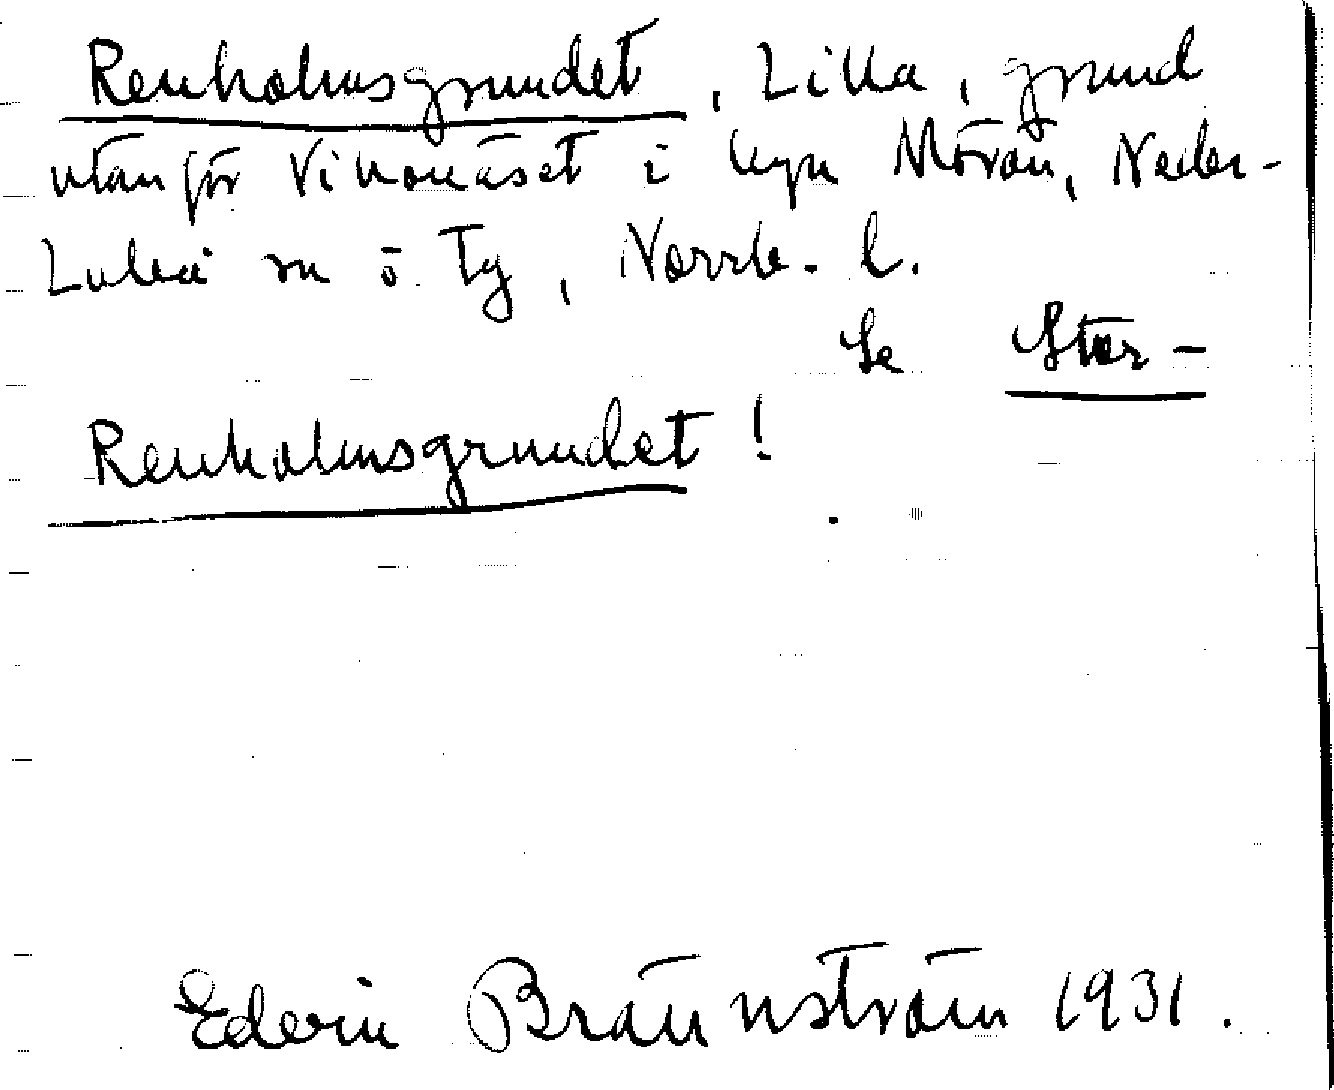 Renholmsgrundet, Lilla, grund
utanför Vikonäset i byn Mörön, Neder-
Luleå sn ö. Tg, Norrb. l.
Se Stor-
Renholmsgrundet!
Ederin Brännström 1931.